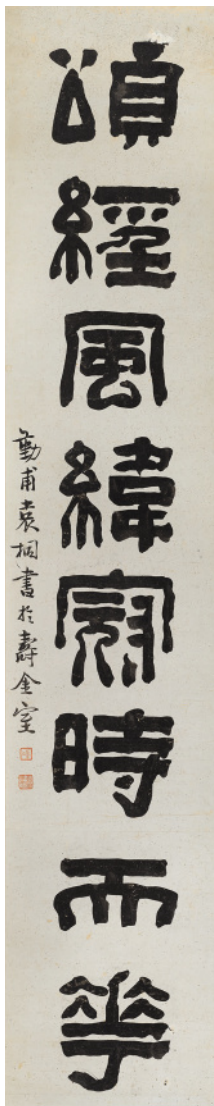 頌經風緯冠時而華
勤甫袁桐書於壽金室